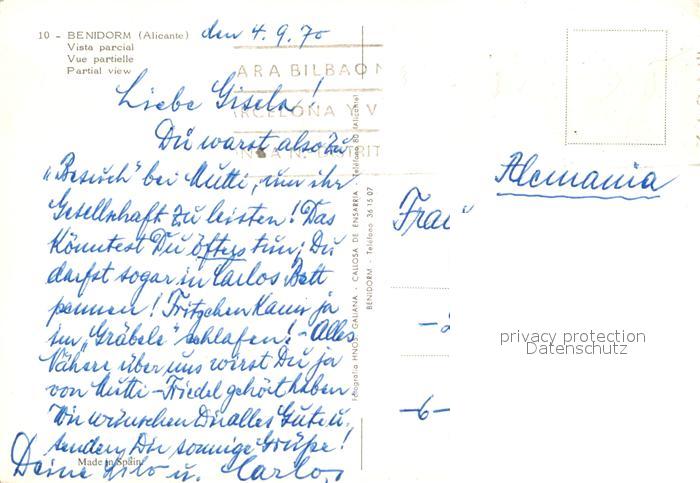 10 - BENIDORM (Alicante)
Vista parcial
Vue partielle
Partial view
den 4.9.70
ARA BILBAO
RCELONA Y V
Liebe Gisela!
Du warst also zu
"Besuch" bei Mutti, um ihr
Gesellschaft zu leisten! Das
könntest Du öfters tun; Du
darfst sogar in Carlos Bett
pennen! Fritzchen kann ja
im "Gräbele" schlafen! - Alles
Nähere über uns wirst Du ja
von Mutti - Friedel gehört haben
Wir wünschen Dir alles Gute u.
senden Dir sonnige Grüße!
Deine Lilo u. Carlos
Made in Spain
Fotografia HNOS. GALIANA - CALLOSA DE ENSARRIA - Teléfono 80 (Alicante)
BENIDORM - Teléfono 36 15 07
Alemania
Frau
-6-
privacy protection
Datenschutz